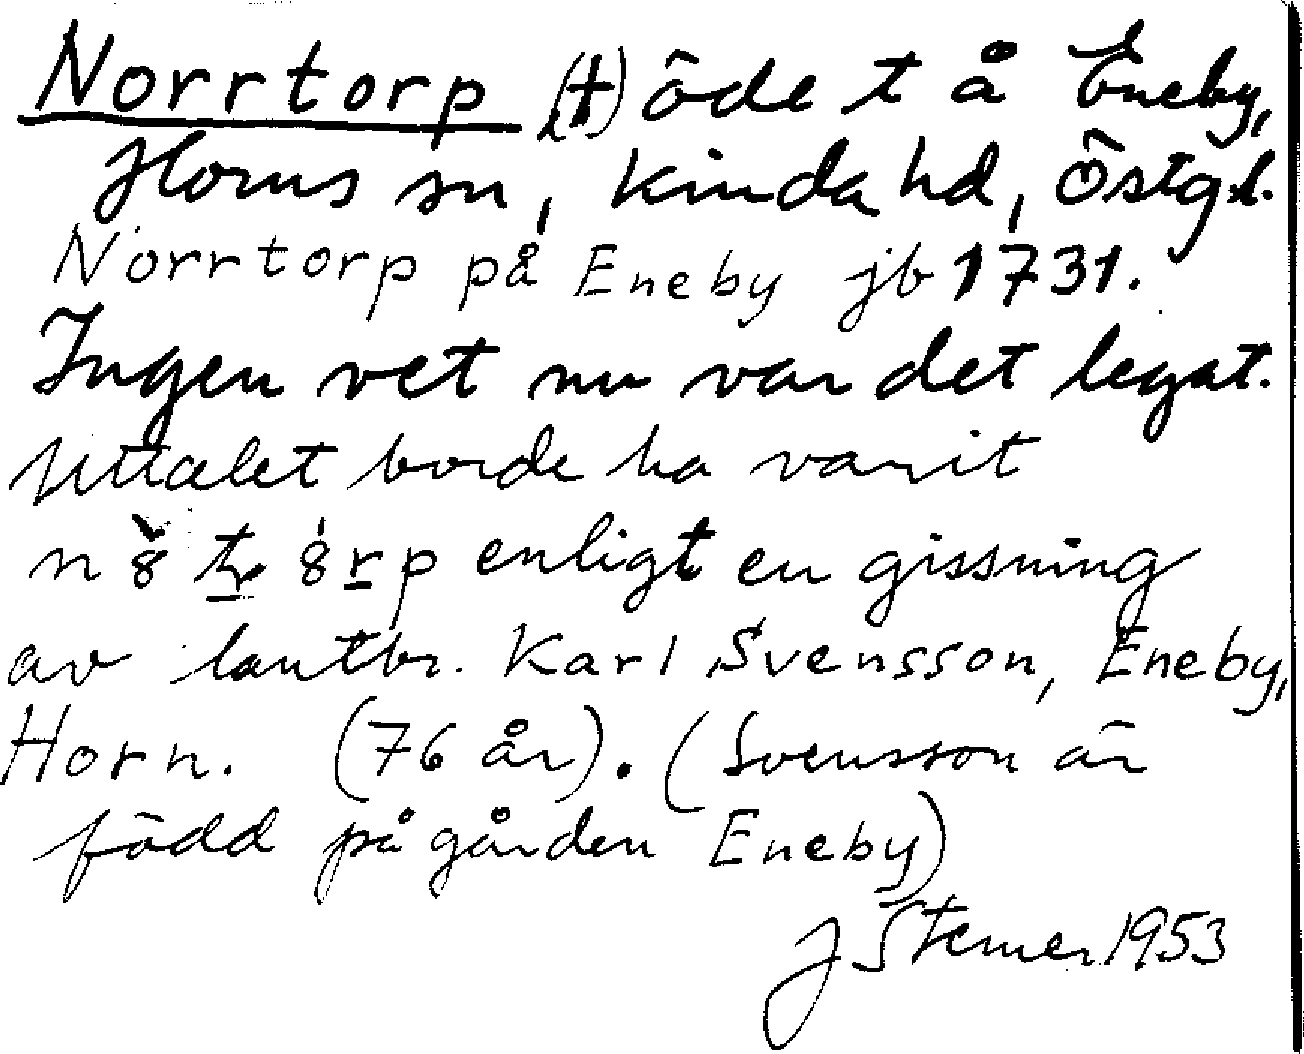 Norrtorp (†) öde t å Eneby,
Horns sn, Kinda hd, Östgl.
Norrtorp på Eneby jb 1731.
Ingen vet nu var det legat.
Uttalet borde ha varit
enligt en gissning
av lantbr. Karl Svensson, Eneby,
Horn. (76 år). (Svensson är
född på gården Eneby)
J Sterner 1953